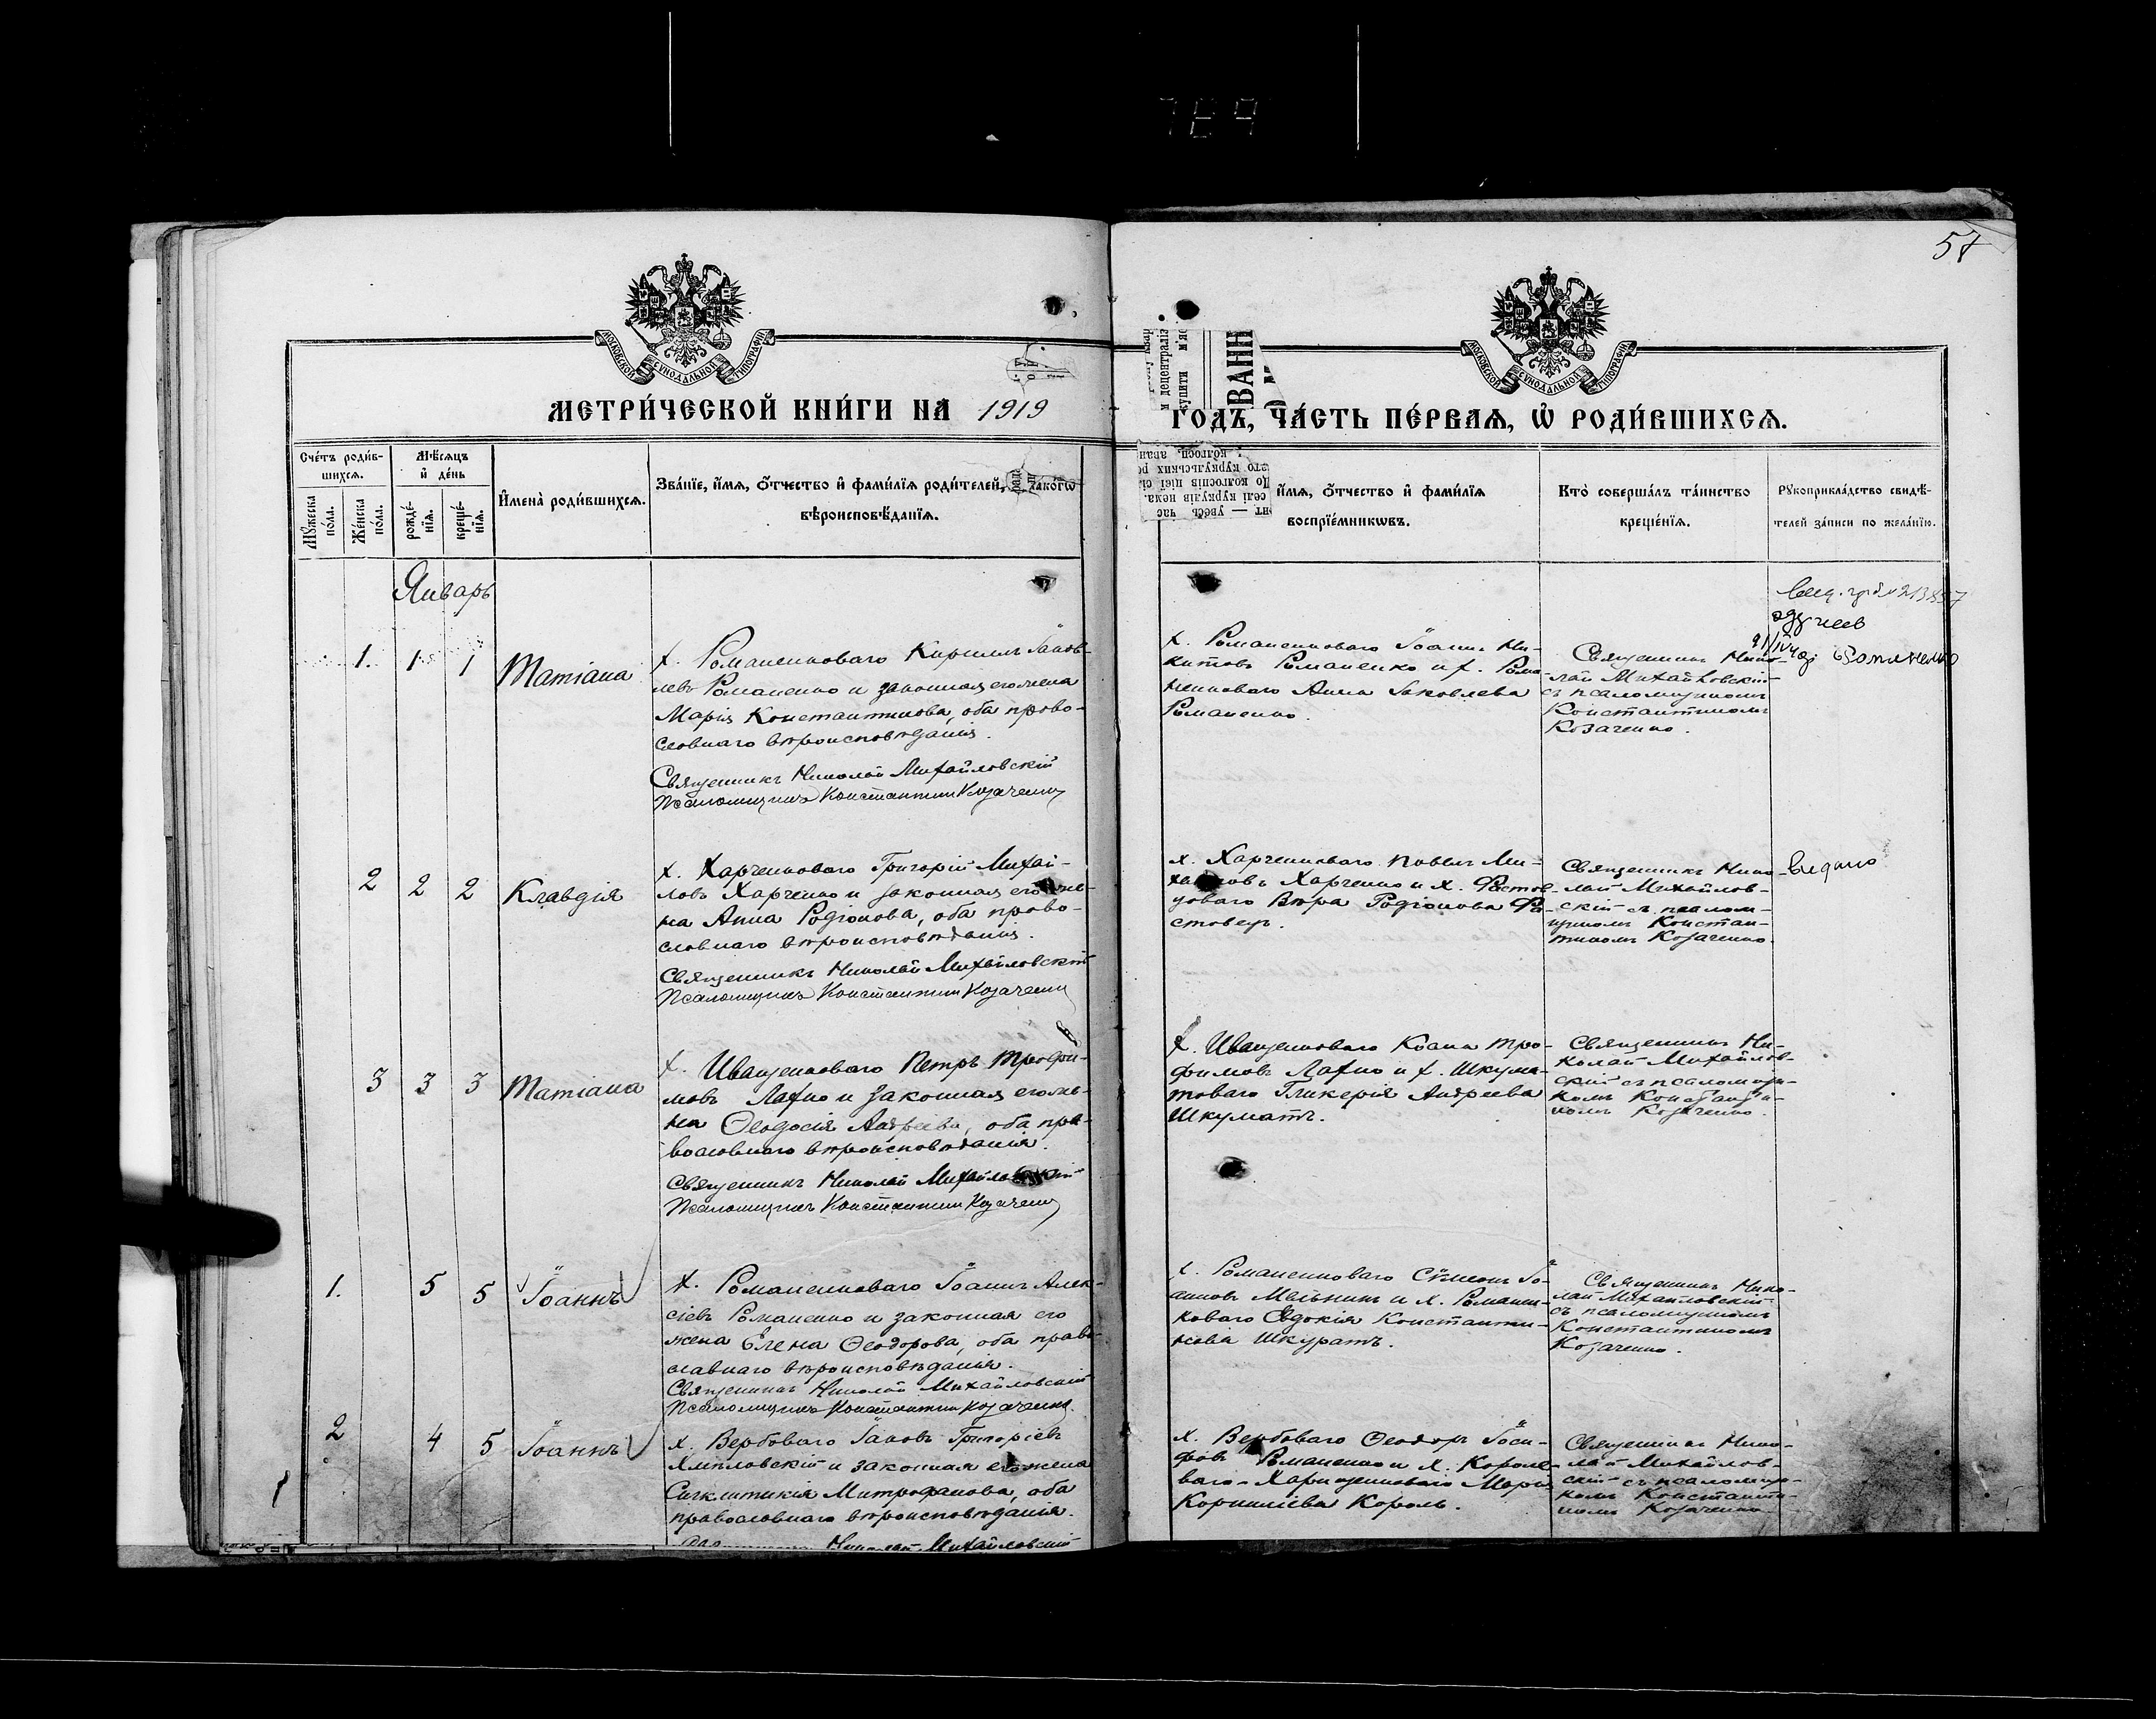 54
МОСКОВСКОЙ СУНОДАЛЬНОЙ ТИПОГРАФІИ
МОСКОВСКОЙ СУНОДАЛЬНОЙ ТИПОГРАФІИ
МЕТРИ́ЧЕСКОЙ КНИ́ГИ НА 1919
ГОДЪ, ЧА́СТЬ ПЕ́РВАЯ, Ѡ҆ РОДИ́ВШИХСѦ.
Сче́тъ роди́в-
шихся.
Мѹ́жеска по́ла.
Же́нска по́ла.
Мѣ́сяцъ
и҆ де́нь
рожде́-
нїя.
креще́-
нїя.
И҆мена̀ роди́вшихся.
Зва́нїе, и҆́мя, ѻ҆́тчество и҆ фами́лїя роди́телей, и҆ како́гѡ
вѣроисповѣ́данїя.
и҆́мя, ѻ҆́тчество и҆ фами́лїя
воспрїе́мникѡвъ.
Кто̀ соверша́лъ та́инство
креще́нїя.
Рѹкоприкла́дство свидѣ́-
телей за́писи по жела́нїю.
Январь
1. 1 1 Татіана
х. Романенкового Кирилъ Іаков-
левъ Романенко и законная его жена
Марія Константинова, оба право-
славнаго вѣроисповѣданія.
Священникъ Николай Михайловскій
Псаломщикъ Константин Козаченко
х. Романенкового Іоаннъ Ни-
китовъ Романенко и х. Рома-
ненкового Анна Іаковлева
Романенко.
Священникъ Нико-
лай Михайловскій
съ псаломщикомъ
Константиномъ
Козаченко.
2 2 2 Клавдія
х. Харченкового Григорій Михаи-
ловъ Харченко и законная его же-
на Анна Родіонова, оба право-
славнаго вѣроисповѣданія.
Священникъ Николай Михайловскій
Псаломщикъ Константин Козаченко
х. Харченкового Павелъ Ми-
хаиловъ Харченко и х. Фастов-
цового Вѣра Родіонова Фа-
стовец.
Священникъ Нико-
лай Михайлов-
скій съ псалом-
щикомъ Констан-
тиномъ Козаченко.
Видано
3 3 3 Татіана
х. Иващенкового Петръ Трофи-
мовъ Лахно и законная его же-
на Ѳеодосія Андреева, оба пра-
вославнаго вѣроисповѣданія.
Священникъ Николай Михайловскій
Псаломщикъ Константин Козаченко
х. Иващенкового Косма Тро-
фимовъ Лахно и х. Шкума-
тового Гликерія Андреева
Шкуматъ.
Священникъ Ни-
колай Михайлов-
скій съ псаломщи-
комъ Константи-
номъ Козаченко.
1. 5 5 Іоаннъ
х. Романенкового Іоаннъ Алек-
сіевъ Романенко и законная его
жена Елена Ѳеодорова, оба право-
славнаго вѣроисповѣданія.
Священникъ Николай Михайловскій
Псаломщикъ Константин Козаченко.
х. Романенкового Сѵмеонъ Іо-
анновъ Мельникъ и х. Романен-
кового Евдокія Константи-
нова Шкуратъ.
Священникъ Нико-
лай Михайловскій
съ псаломщикомъ
Константиномъ
Козаченко.
2 4 5 Іоаннъ
х. Вербоваго Іаковъ Григоріевъ
Хмѣловскій и законная его жена
Синклитикія Митрофанова, оба
православнаго вѣроисповѣданія.
Николай Михайловскій
х. Вербоваго Ѳеодоръ Іоси-
фовъ Романенко и х. Короле-
Корниліева Король.
Священникъ Нико-
лай Михайлов-
скій съ псаломщи-
комъ Константи-
номъ Козаченко